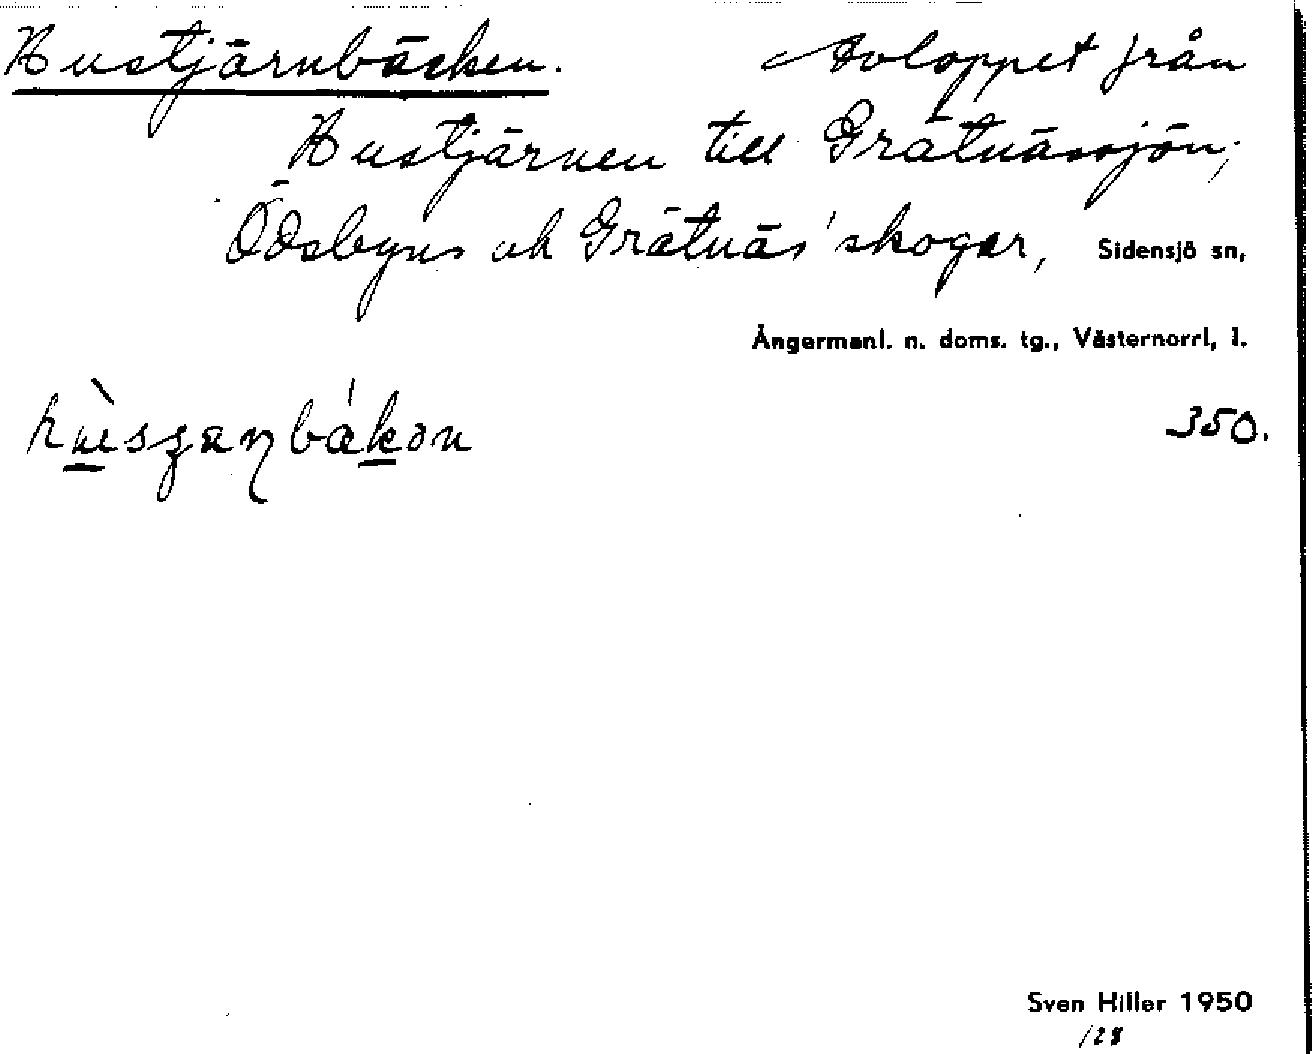 Hustjärnbäcken. Avloppet från
Hustjärnen till Grätnässjön;
Ödsbyns och Grätnäs' skogar, Sidensjö sn,
Ångermanl. n. doms. tg., Västernorrl, l.
350.
Sven Hiller 1950
128